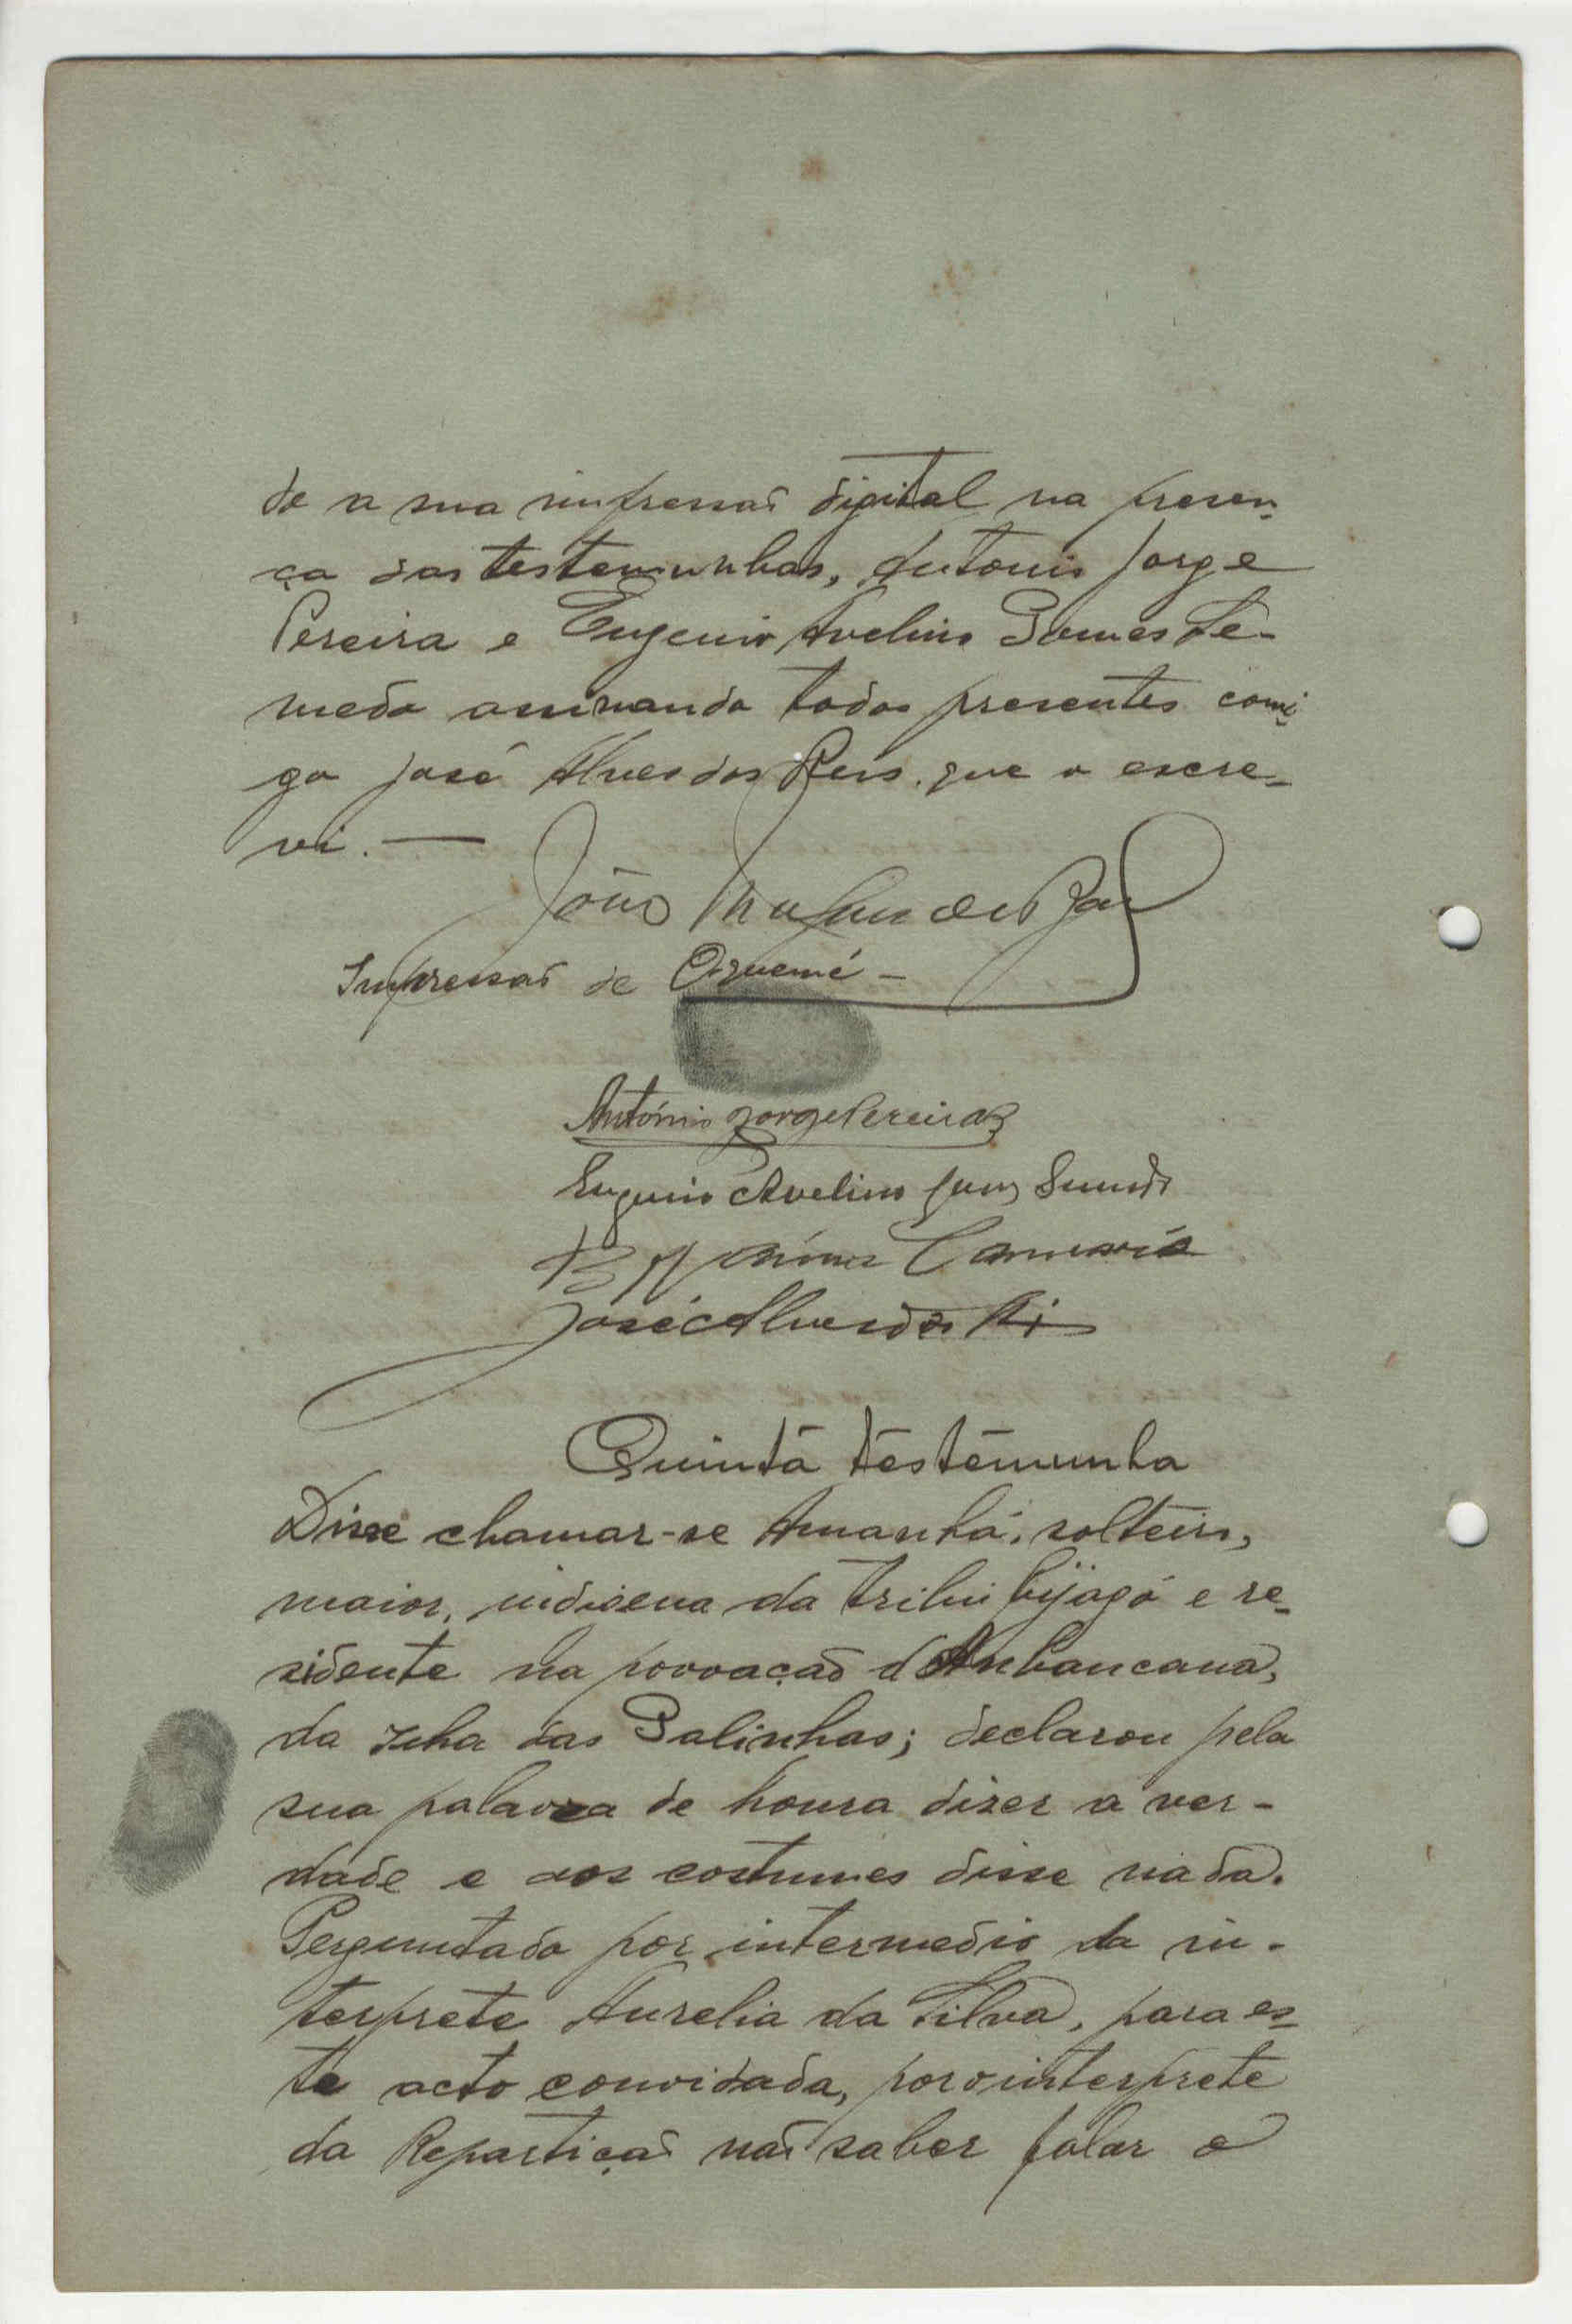 do a sua impressaõ digital na presen-
ça das testemunhas, Antonio Jorge
Pereira e Eugenio Avelino Gomes Se-
medo assinando todos presentes comi-
go José Alves dos Reis que o escre-
vi. —
João
Impressaõ de Oquemé —
António Jorge Pereira
Eugenio Avelino Gomes Semedo
José Alves dos Reis
Quinta testemunha
Disse chamar-se Amanhá, solteiro,
maior, indigena da tribu bijagó e re-
sidente na povoaçaõ d'Ambancana,
da Ilha das Galinhas; declarou pela
sua palavra de honra dizer a ver-
dade e aos costumes disse nada.
Perguntado por intermedio da in-
terprete Aurelia da Silva, para es-
te acto convidada, por o interprete
da Repartiçaõ naõ saber falar o